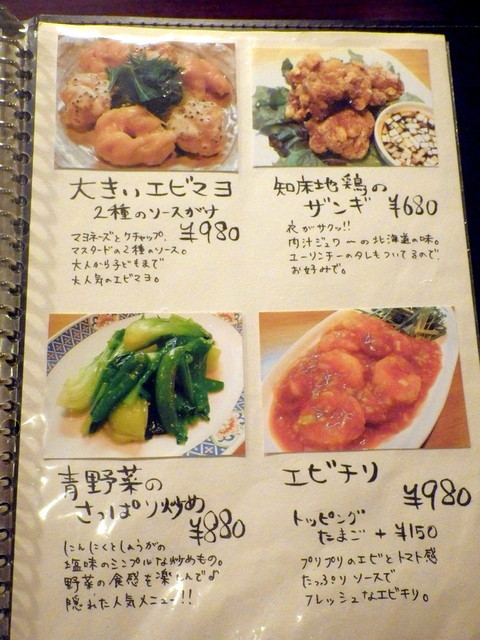 大きいエビマヨ
2種のソースがけ
¥980
マヨネーズとケチャップ、
マスタードの2種のソース。
大人から子どもまで
大人気のエビマヨ。
知床地鶏の
ザンギ ¥680
衣がサクッ!!
肉汁ジュワーの北海道の味。
ユーリンチーのタレもついてるので
お好みで。
青野菜の
さっぱり炒め
¥880
にんにくとしょうがの
塩味のシンプルな炒めもの。
野菜の食感を楽しんで♪
隠れた人気メニュー!!
エビチリ
¥980
トッピング
たまご + ¥150
プリプリのエビとトマト感
たっぷりソースで
フレッシュなエビチリ。